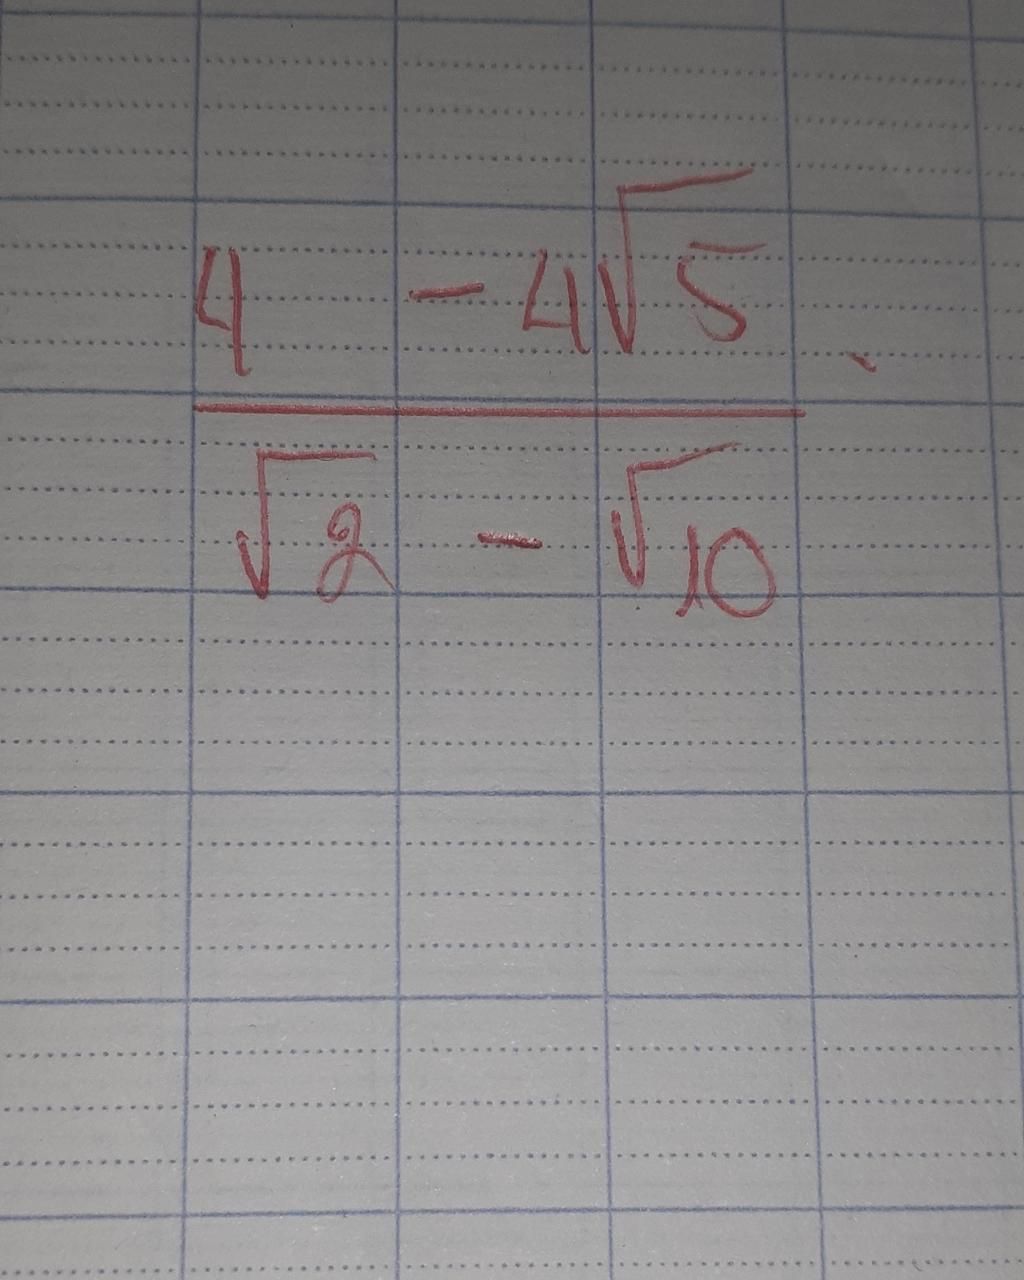 4 - 4√5
√2 - √10